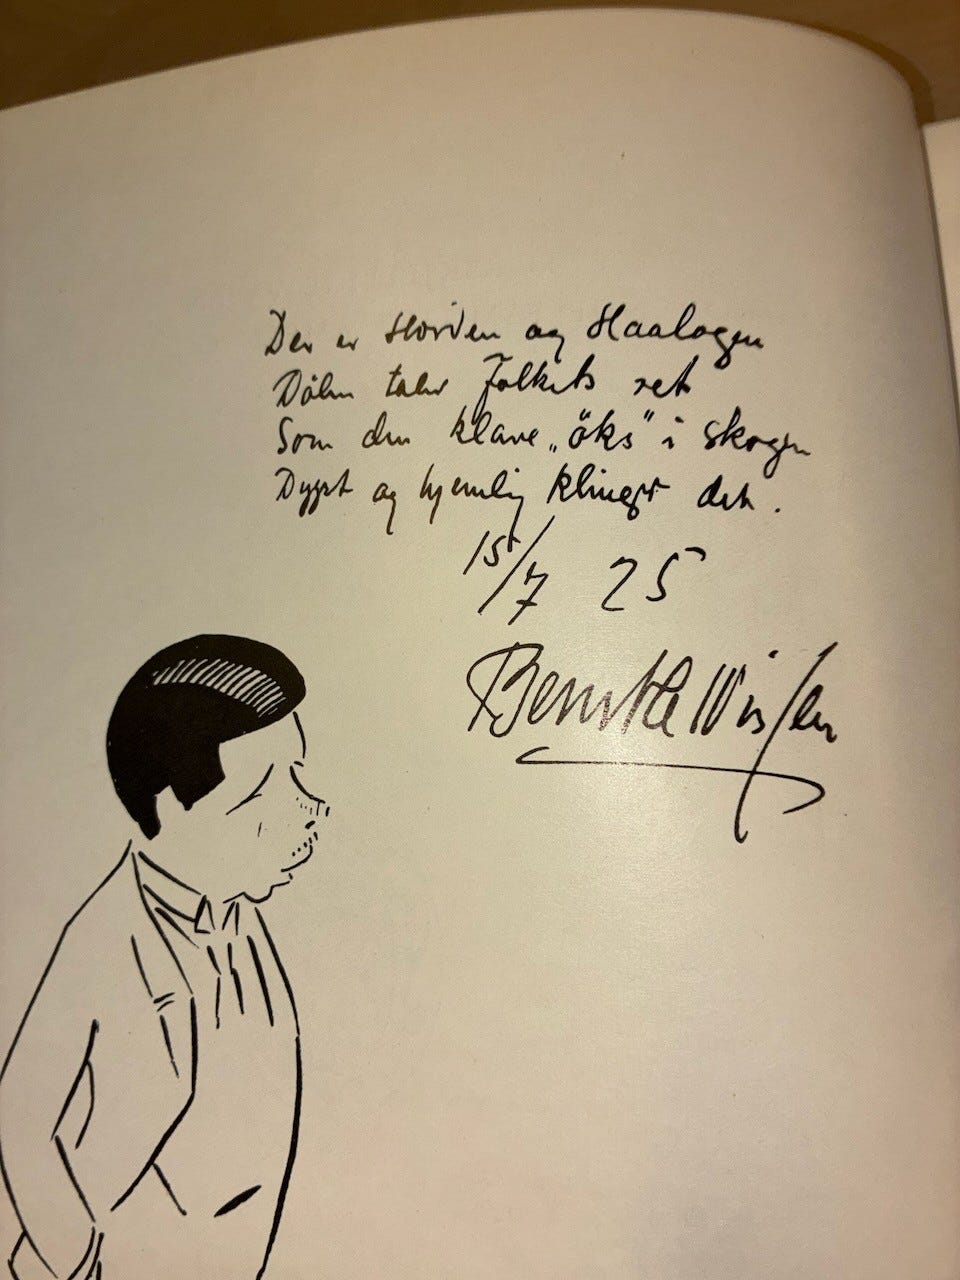 Der er Horden og Haalogen
Dølen taler Folkets ret
Som den klare „öks“ i skogen
Dypt og hjemlig klinger det.
15/7 25